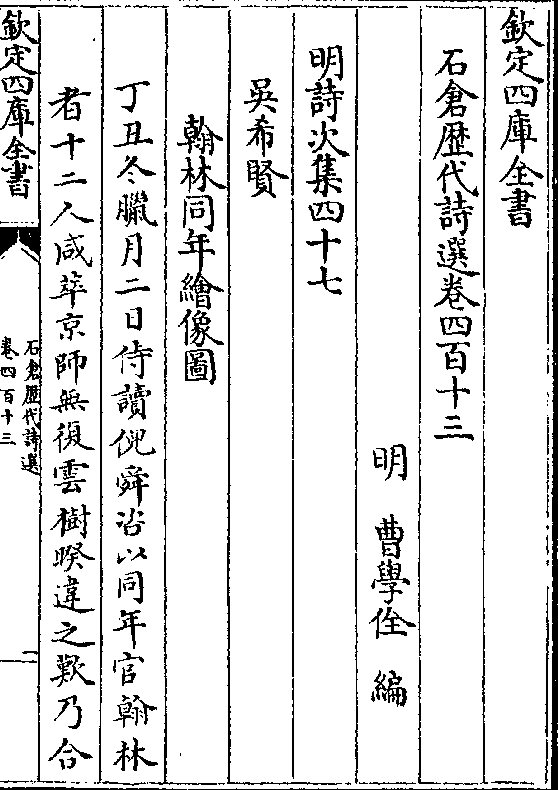 欽定四庫全書
石倉歷代詩選卷四百十三
明　曹學佺　編
明詩次集四十七
吳希賢
翰林同年繪像圖
丁丑冬臘月二日侍讀倪舜咨以同年官翰林
者十二人咸萃京師無復雲樹暌違之歎乃合
欽定四庫全書
石倉歷代詩選
卷四百十三
一